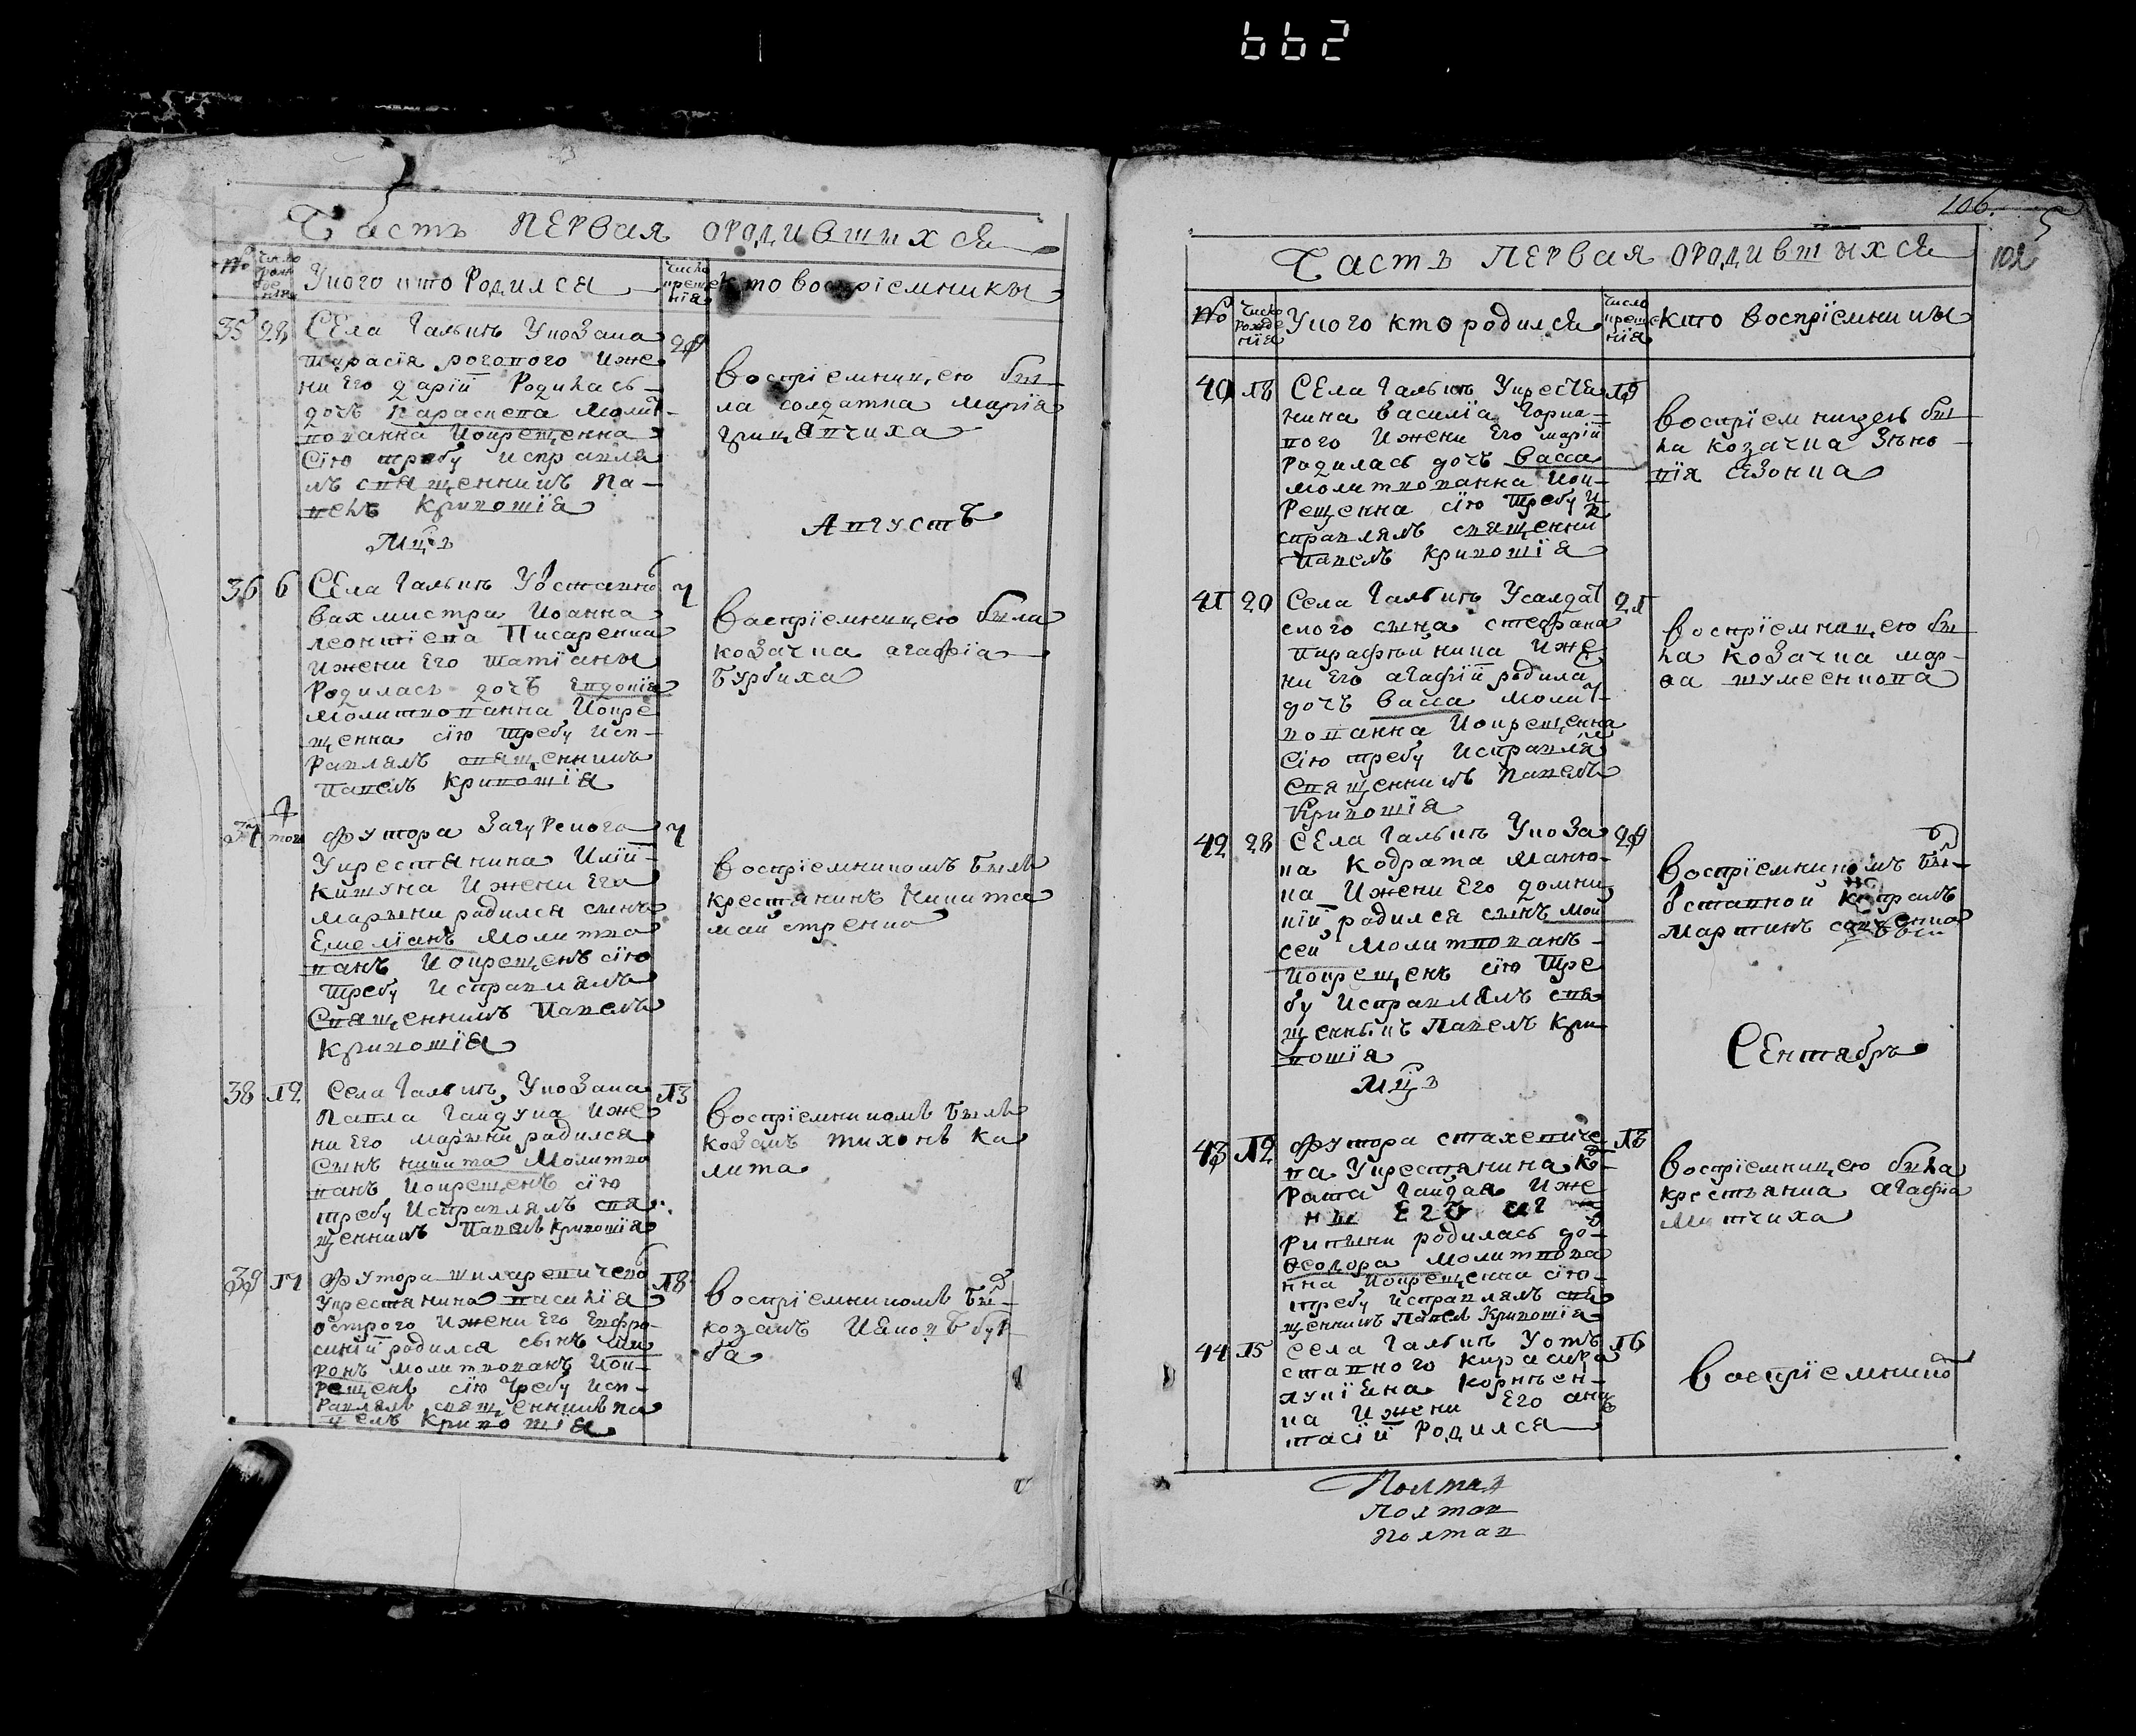 662
Часть первая ородившихся
№
число рожде нія
Укого кто Родился
число креще нія
кто воспріемники
35 28
Села Галькъ Укозака
тарасія рогового Иже
ни Его дарїи Родилась
дочъ Параскева Молит
вованна Иокрещенна
Сїю требу исправля
лъ священникъ Па
велъ Кривошїя
29
воспріемницею бы
ла солдатка марїя
грицаичиха
Мцъ Августъ
36 6
Села Галькъ Уоставно
вахмистра Иоанна
леонтїева Писаренка
Ижени Его татїаны
Родилась дочъ Евдокїя
Молитвованна Иокре
щенна сїю требу исп
равлялъ священникъ
Павелъ Кривошїя
7
васпріемницею была
козачка агафїа
Бурбиха
37
Футора Загуревога
Укрестянина Илїи
Кишуна Ижени Его
Марыни радился сынъ
Емелїанъ Молитво
ванъ Иокрещенъ сїю
требу исправлялъ
Священникъ Павелъ
Кривошїя
7
воспріемникомъ былъ
крестянинъ Никита
майстренко
38 12
Села Галькъ, Укозака
Павла Гайдука Иже
ни Его марыни радился
Сынъ никита Молитво
ванъ Иокрещенъ сїю
требу исправлялъ свя
щенникъ Павелъ Кривошїя
13
воспріемникомъ былъ
козакъ тихонъ ка
лита
39 17
Футора шкларевичево
Укрестянина василїя
острого Ижени Его Евфро
синїи родился сынъ ми
ронъ молитвованъ Иок
рещенъ сїю требу исп
равлялъ священникъ па
велъ Кривошїя
18
воспріемникомъ был
козакъ Иаковъ бур
ба
106.
102
Часть первая ородившыхся
№
число рожде нїя
Укого кто родился
число креще нїя
кто воспрїемники
40 18
Села Галькъ Укрестя
нина василїа Горка
вого Ижени Его марїи
родилась дочъ васса
молитвованна Иок
рещенна сїю требу И
справлялъ священни
Павелъ Кривошїя
19
воспрїемницею бы
ла козачка Зѣно
вїя Сезонка
41 20
Села Галькъ Усалдат
ского сына стефана
Парафѣйника Иже
ни Его агафїи родила
дочъ васса молит
вованна Иокрещенна
сїю требу исправля
Священникъ Павелъ
Кривошїя
21
воспрїемницею бы
ла козачка мар
ѳа шумейкова
42 28
Села Галькъ Укоза
ка Кодрата Маню
ка Ижени Его домни
кїи, радился сынъ Мои
сей молитвованъ
Иокрещенъ сїю тре
бу исправлялъ свя
щенникъ Павелъ Кри
вошїя
29
воспрїемникомъ был
отставной капралъ
мартинъ
Мцъ Сентябрь
43 12
Футора стахевиче
ва Укрестянина Код
рата Гайдая Иже
ны Его
рипыни родилась до
Ѳеодора молитвова
нна Иокрещенна сїю
требу исправлялъ свя
щенникъ Павелъ Кривошїя
13
воспрїемницею была
крестьянка агафїа
Митчиха
44 15
Села Галькъ Уотъ
ставного кирасира
лукїяна Корнѣен
ка Ижени Его ана
стасїи Родился
16
воспрїемнико
Полтав
Полтав
Полтав